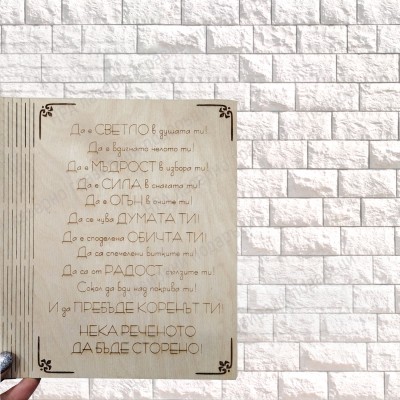 Да е СВЕТЛО в душата ти!
Да е вдигнато челото ти!
Да е МЪДРОСТ в избора ти!
Да е СИЛА в снагата ти!
Да е ОГЪН в очите ти!
Да се чува ДУМАТА ТИ!
Да е споделена ОБИЧТА ТИ!
Да са спечелени битките ти!
Да са от РАДОСТ сълзите ти!
Сокол да вди над покрива ти!
И да ПРЕБЪДЕ КОРЕНЪТ ТИ!
НЕКА РЕЧЕНОТО
ДА БЪДЕ СТОРЕНО!